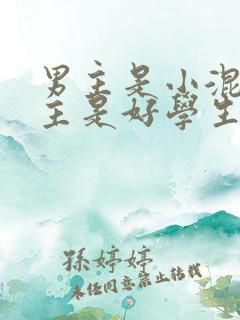 男主是小混
主是好學生
孫婷婷
未经同意禁止转载